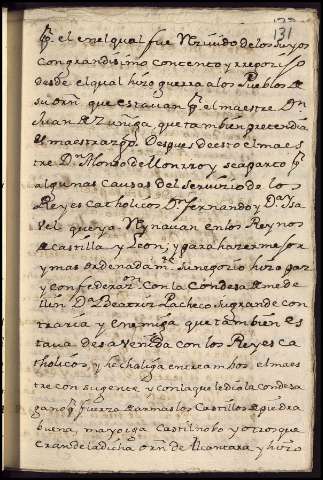 131
el en el qual fue Reziuido de los suyos
con grandisimo contento y rregozijo
desde el qual hizo guerra a los Pueblos de
su orñ que estauan el maestre Don
Juan de Zuniga, que tambien pretendia
el maestrazgo. Despues de esto el maes
tre Dn Alonso de Monrroy se aparto
algunas causas del seruiçio de los
Reyes Catholicos Dn fernando y Dª Isa
vel que ya Reynauan en los Reynos
de castilla y Leon; y para hazer mejor
y mas ordenadamte su negocio hizo paz
y confederazon con la Condesa de mede
llin Dª Beatriz Pacheco su grande con
traria y enemiga que tambien es
taua desauenida con los Reyes ca
tholicos, y hecha liga entre ambos, el maes
tre con su gente y con la que le dio la condesa
gano fuerza de armas los Castillos de piedra
buena, mayorga Castilnobo y otros que
eran de la dicha orñ de Alcantara y hizo